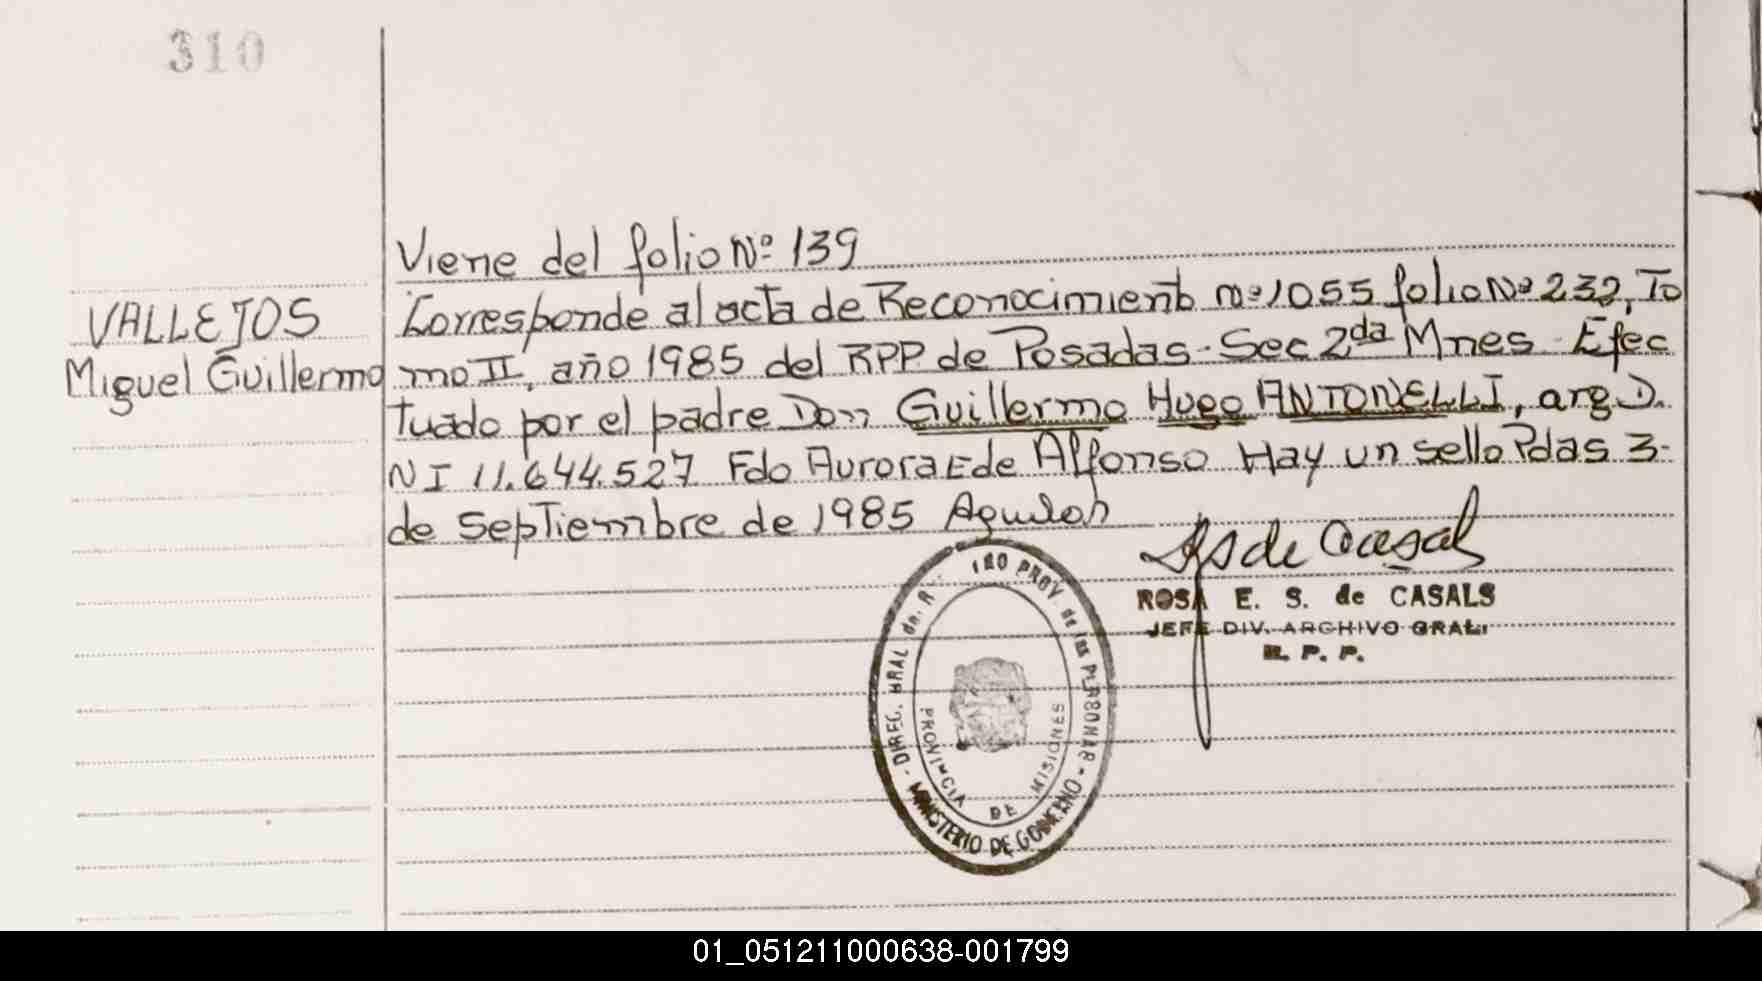 310
Viene del folio Nº 139
VALLEJOS
Miguel Guillermo
Corresponde al acta de Reconocimiento nº 1055 folio Nº 232, To
mo II, año 1985 del RPP. de Posadas - Sec 2da Mnes - Efec
tuado por el padre Don Guillermo Hugo ANTONELLI, arg D.
NI 11.644.527 Fdo Aurora E de Alfonso Hay un sello Pdas 3-
de septiembre de 1985
de Casals
ROSA E. S. de CASALS
JEFE DIV. ARCHIVO GRAL.
R. P. P.
PROV. de las PERSONAS - MINISTERIO DE GOBIERNO - DIREC. GRAL de
PROVINCIA DE MISIONES
01_051211000638-001799